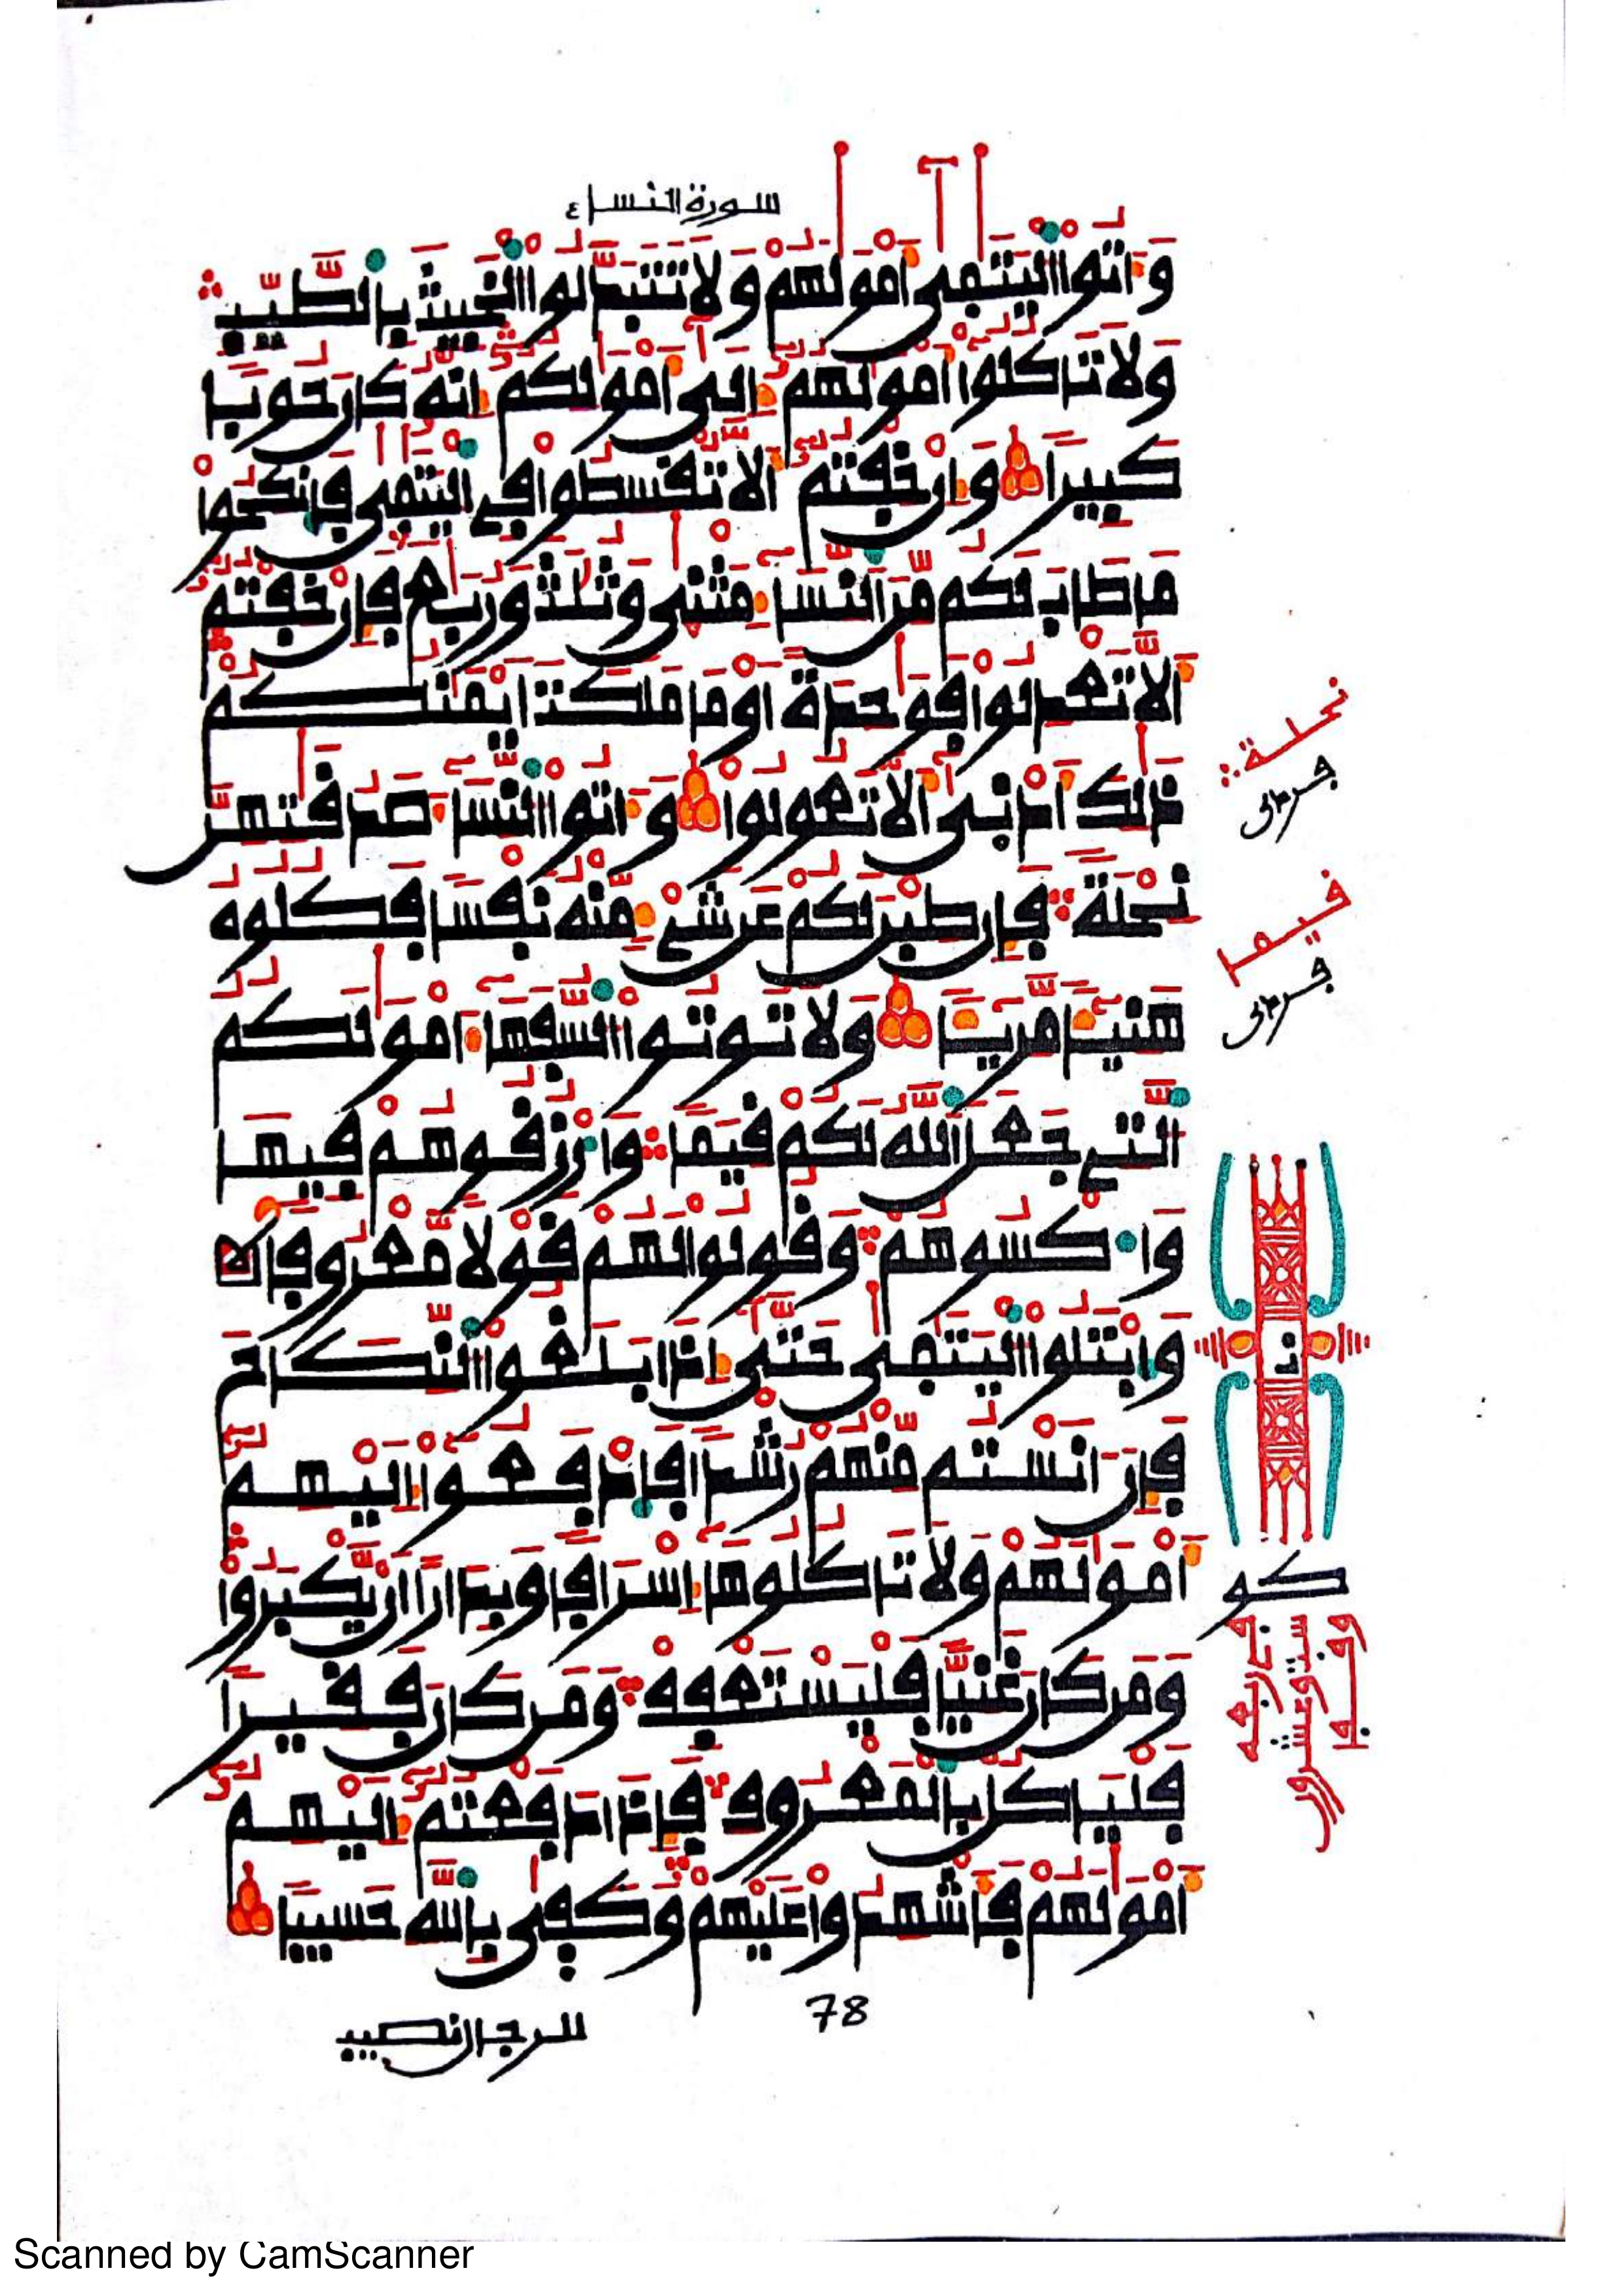 سورة النساء ٤
وَءَاتُوا۟ الْيَتَٰمَىٰٓ أَمْوَٰلَهُمْ وَلَا تَتَبَدَّلُوا۟ الْخَبِيثَ بِالطَّيِّبِ
وَلَا تَاكُلُوٓا۟ أَمْوَٰلَهُمُۥٓ إِلَىٰٓ أَمْوَٰلِكُمُۥٓ إِنَّهُۥ كَانَ حُوبٗا
كَبِيرٗا وَإِنْ خِفْتُمُۥٓ أَلَّا تُقْسِطُوا۟ فِي الْيَتَٰمَىٰ فَانكِحُوا۟
مَا طَابَ لَكُم مِّنَ النِّسَآءِ مَثْنَىٰ وَثُلَٰثَ وَرُبَٰعَ فَإِنْ خِفْتُمُۥٓ
أَلَّا تَعْدِلُوا۟ فَوَٰحِدَةً اَوْ مَا مَلَكَتَ اَيْمَٰنُكُمْ
ذَٰلِكَ أَدْنَىٰٓ أَلَّا تَعُولُوا۟ وَءَاتُوا۟ النِّسَآءَ صَدُقَٰتِهِنَّ
نِحْلَةٗ فَإِن طِبْنَ لَكُمْ عَن شَيْءٖ مِّنْهُ نَفْسٗا فَكُلُوهُ
هَنِيٓـٔٗا مَّرِيٓـٔٗا وَلَا تُوتُوا۟ السُّفَهَآءَ امْوَٰلَكُمُ
الَّتِي جَعَلَ اللَّهُ لَكُمْ قِيَمٗا وَارْزُقُوهُمْ فِيهَا
وَاكْسُوهُمْ وَقُولُوا۟ لَهُمْ قَوْلٗا مَّعْرُوفٗا
وَابْتَلُوا۟ الْيَتَٰمَىٰ حَتَّىٰٓ إِذَا بَلَغُوا۟ النِّكَاحَ
فَإِنَ ءَانَسْتُم مِّنْهُمْ رُشْدٗا فَادْفَعُوٓا۟ إِلَيْهِمُۥٓ
أَمْوَٰلَهُمْ وَلَا تَاكُلُوهَآ إِسْرَافٗا وَبِدَارًا اَنْ يَّكْبَرُوا۟
وَمَن كَانَ غَنِيّٗا فَلْيَسْتَعْفِفْ وَمَن كَانَ فَقِيرٗا
فَلْيَاكُلْ بِالْمَعْرُوفِ فَإِذَا دَفَعْتُمُۥٓ إِلَيْهِمُۥٓ
أَمْوَٰلَهُمْ فَأَشْهِدُوا۟ عَلَيْهِمْ وَكَفَىٰ بِاللَّهِ حَسِيبٗا
نحلة
قيما
78
للرجال نصيب
Scanned by CamScanner